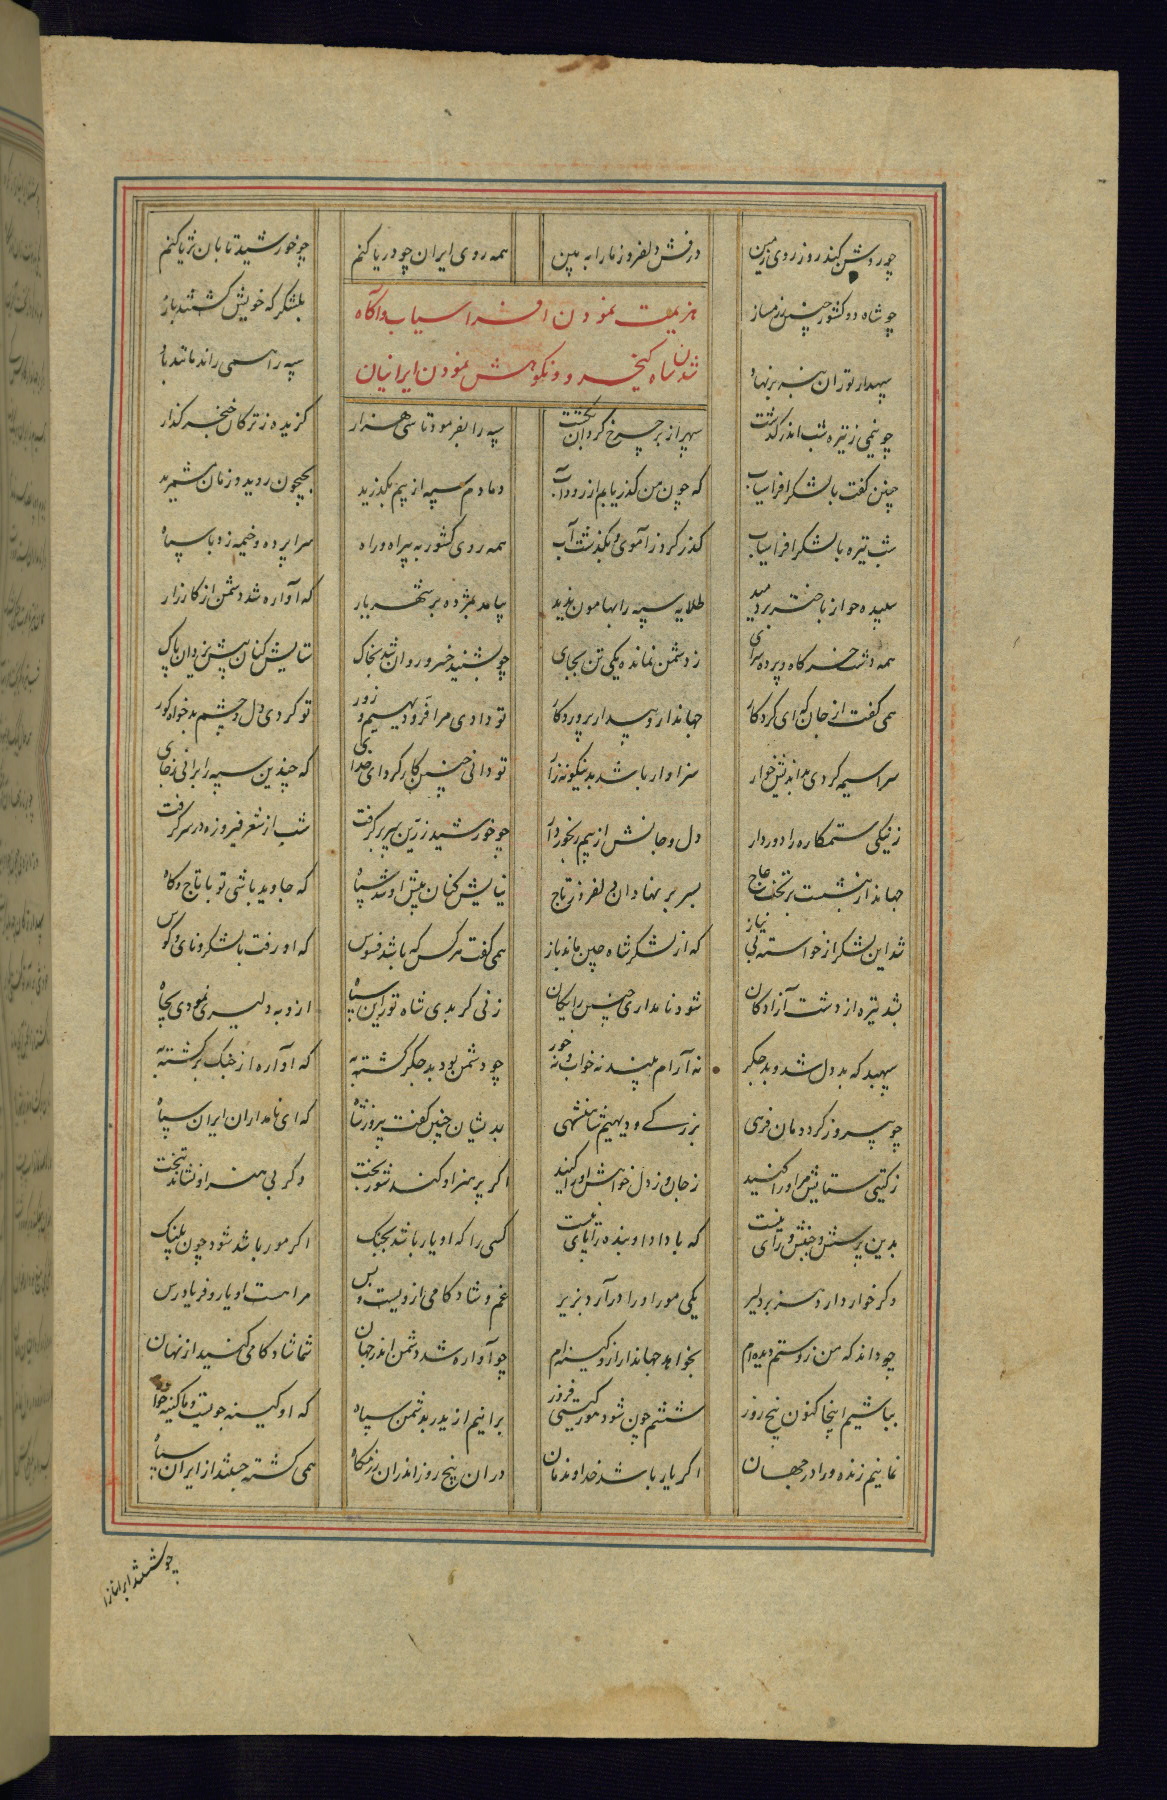 چو روشن کند روز روی زمین درفش دلفروز ما را ببین همه روی ایران چو دریا کنم چو خورشید تابان ثریا کنم
هزیمت نمودن افراسیاب و آگاه
شدن شاه کیخسرو و نکوهش نمودن ایرانیان
چو شاه دو کشور چنین رزمساز بلشکر که خویش گشتند باز
سپهدار توران بنه بر نهاد سپه را همی راند مانند باد
چو نیمی ز تیره شب اندر گذشت سپهر از بر چرخ گردان بگشت سپه را بفرمود تا سی هزار گزیده ز ترکان خنجر گذار
چنین گفت با لشکر افراسیاب که چون من گذر یابم از رود آب دمادم سپه از پیم بگذرید بجیحون روید و زمان مشمرید
شب تیره با لشکر افراسیاب گذر کرد ز آموی و بگذشت آب همه روی کشور به بیراه و راه سراپرده و خیمه زد با سپاه
سپیده چو از باختر بر دمید طلایه سپه را بهامون ندید بیامد بمژده بر شهریار که آواره شد دشمن از کارزار
همه دشت خرگاه و پرده سرای ز دشمن نمانده یکی تن بجای چو بشنید خسرو روان شد بخاک ستایش کنان پیش یزدان پاک
همی گفت از جان که ای کردگار جهاندار و بیدار پروردگار تو دادی مرا فر و دیهیم و زور تو کردی دل و چشم بدخواه کور
سراسیمه کردی بداندیش خوار سزاوار باشد بدینگونه زار تو دانی چنین کار کرد ای خدای که چندین سپه را برانی ز جای
ز نیکی ستمکاره را دور دار دل و جانش از بیم رنجور دار چو خورشید زرین سپر برگرفت شب از شعر فیروزه در سر گرفت
جهاندار بنشست بر تخت عاج بسر بر نهاد آن دلفروز تاج نیایش کنان پیش او شد سپاه که جاوید باشی تو با تاج و گاه
شد این لشکر از خواسته بی نیاز که از لشکر شاه چین ماند باز همی گفت هر کس که باشد فسوس که او رفت با لشکر و نای و کوس
بشد تیره از دشت آزادگان شود نامداری چنین رایگان
سپهبد که بد دل شد و بد جگر نه آرام بیند نه خواب و نه خور چو دشمن بود بد جگر کشته به که آواره از جنگ برگشته به
چو پیروزگر دادمان فرهی بزرگی و دیهیم شاهنشهی بدیشان چنین گفت پیروز شاه که ای نامداران ایران سپاه
ز گیتی ستایش مر او را کنید ز جان و ز دل خواهش او را کنید اگر پر هنر او کند شور بخت و گر بی هنر او نشاند بتخت
بدین پرسش و جنبش و رای نیست که با داد او بنده را پای نیست کسی را که او یار باشد بجنگ اگر مور باشد شود چون پلنگ
و گر خوار دارد هنر بر دلیر یکی مور او را در آرد بزیر غم و شادکامی ازویست و بس مرا هست او یار و فریادرس
چو داند که من زو ستم دیده ام بخواهد جهاندار ازو کینه ام چو آواره شد دشمن اندر جهان شما شادکامی کنید از نهان
بباشیم اینجا کنون پنج روز ششم چون شود هور گیتی فروز برانیم از یدر بدشمن سپاه که او کینه جویست و ما کینه خواه
نمانیم زنده ورا در جهان اگر یار باشد خداوندمان در آن پنج روز اندران رزمگاه همی کشته جستند از ایران سپاه